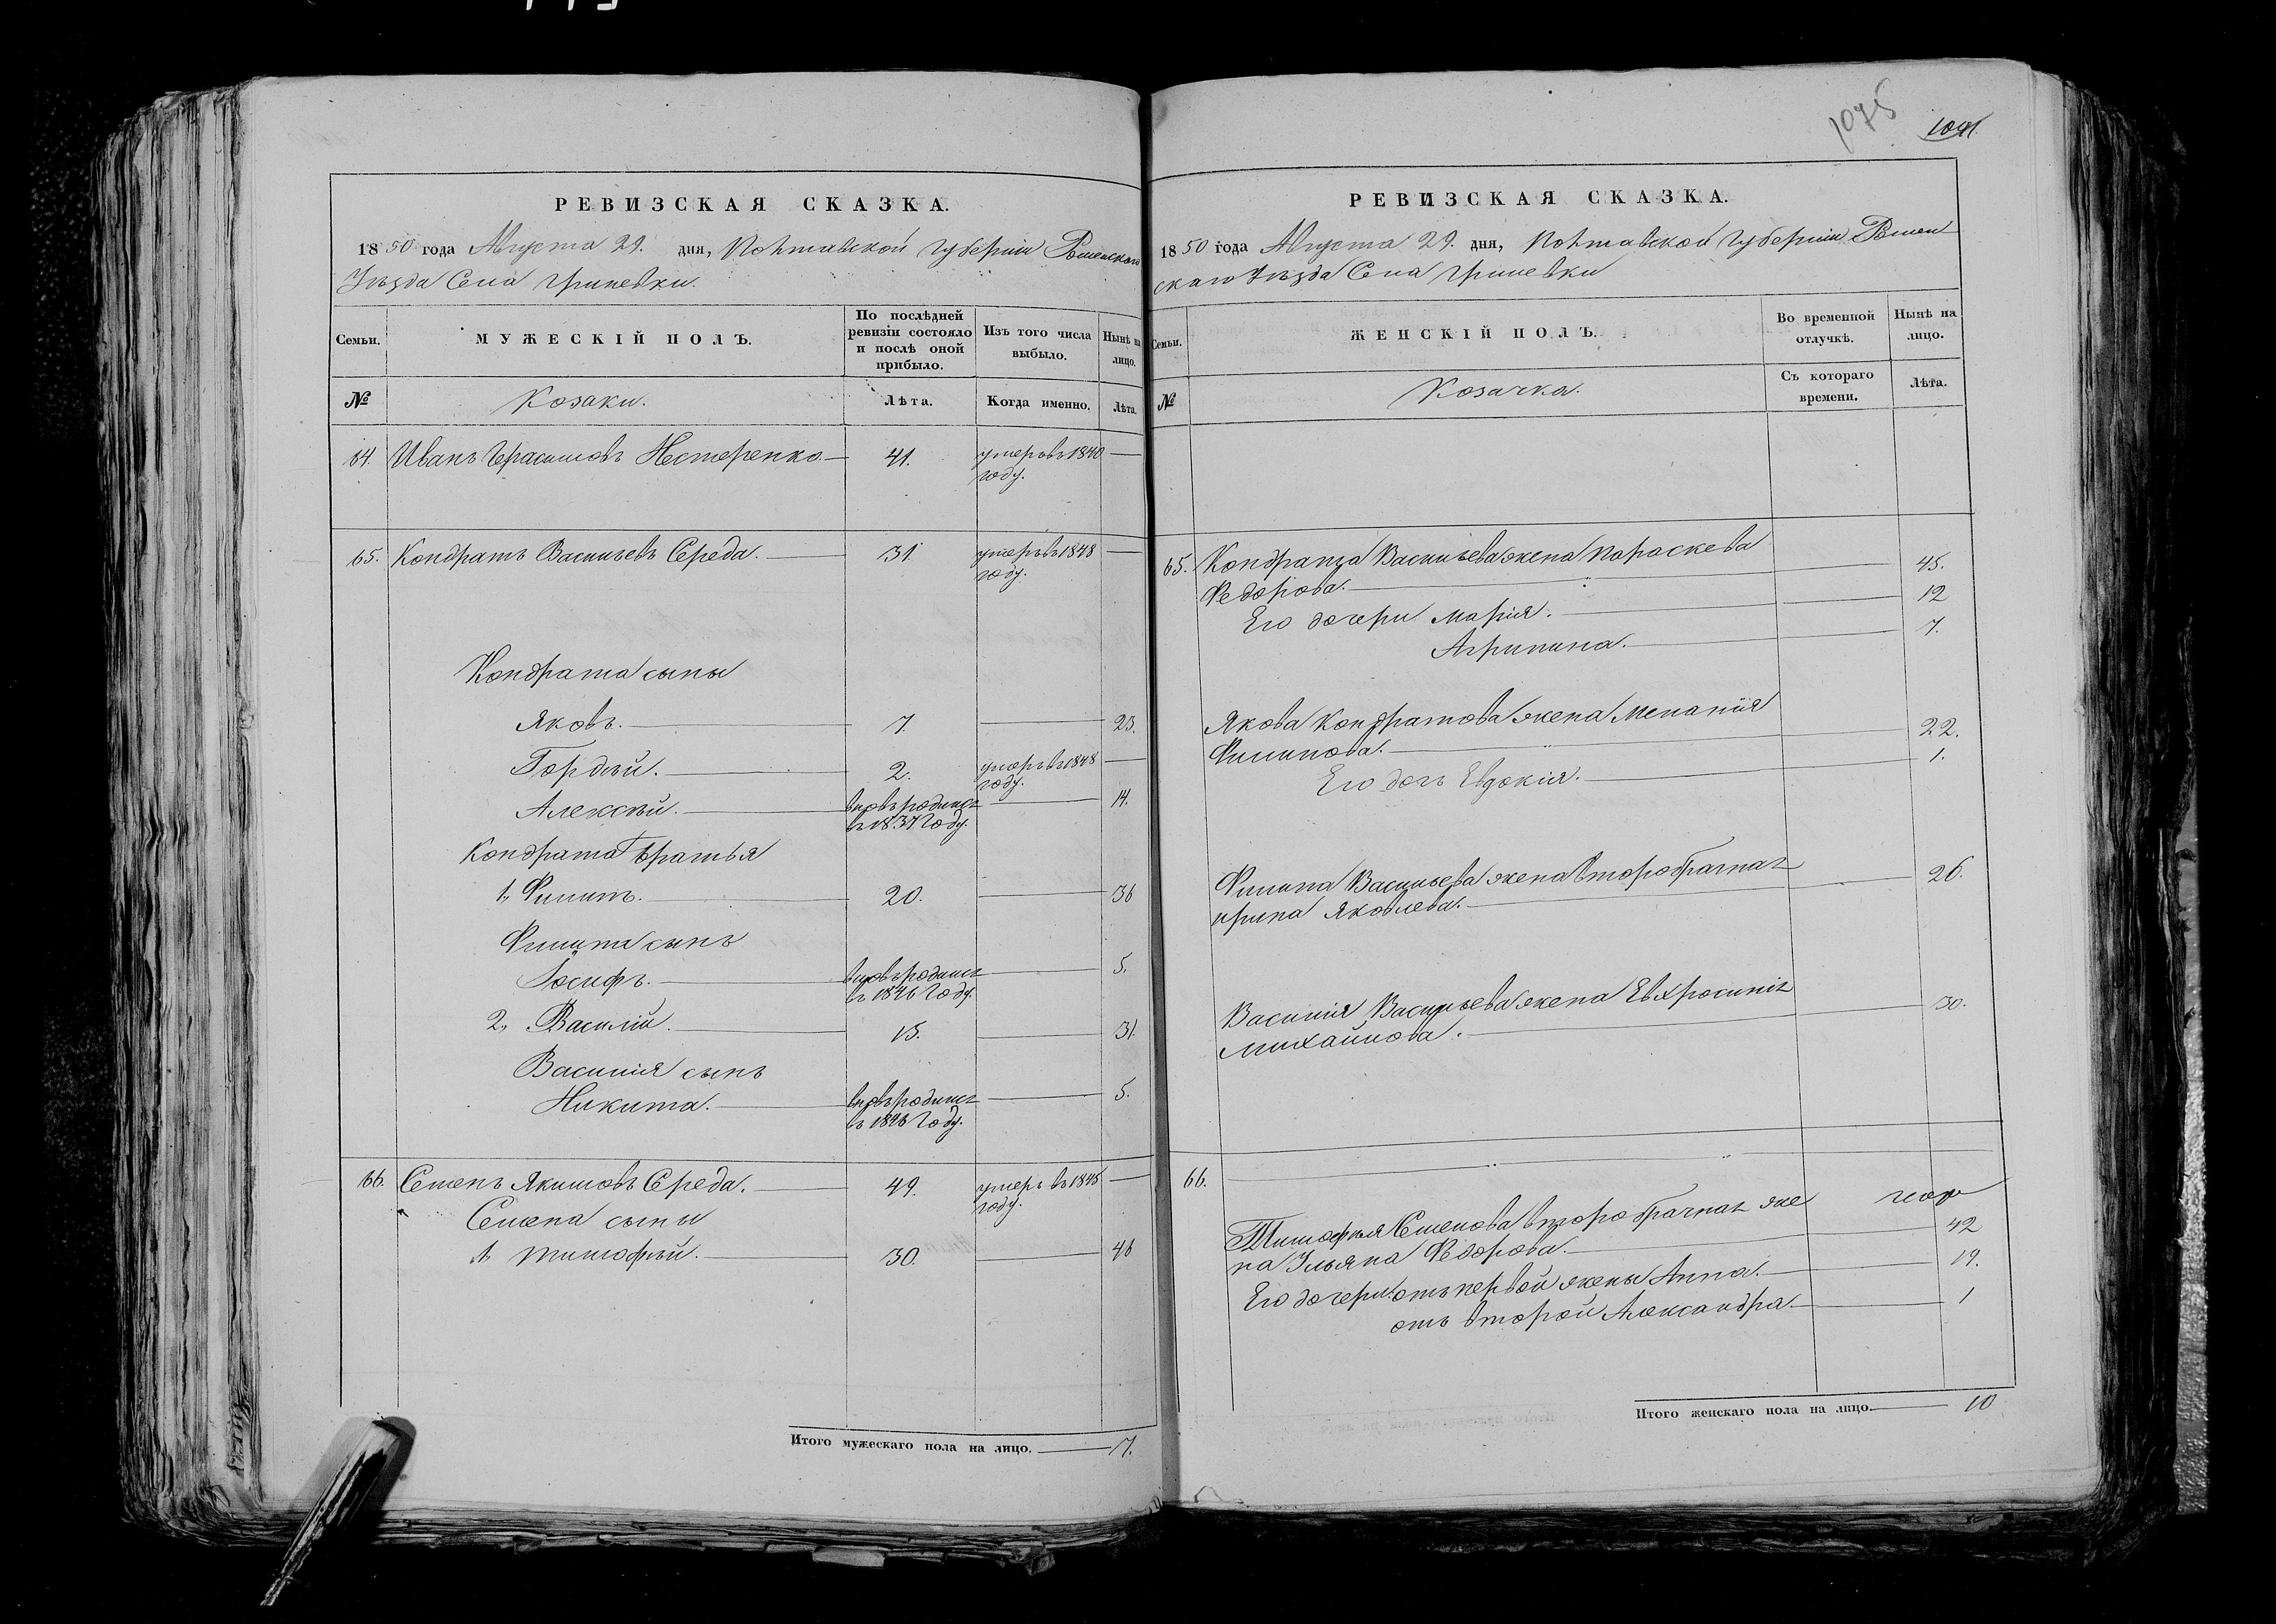 1075
РЕВИЗСКАЯ СКАЗКА.
1850 года Августа 29. дня, Полтавской Губерніи Роменскаго
Уѣзда Села Гриневки.
Семьи.
МУЖЕСКІЙ ПОЛЪ.
По послѣдней ревизіи состояло и послѣ оной прибыло.
Изъ того числа выбыло.
Нынѣ на лицо.
№
Козаки.
Лѣта.
Когда именно.
Лѣта.
64. Иванъ Герасимовъ Нестеренко 41. умеръ въ 1840
году.
65. Кондратъ Васильевъ Середа. 31. умеръ въ 1848
году.
Кондрата сыны
Яковъ. 7. 23.
Гордѣй. 2. умеръ въ 1848
году.
Алексѣй. вновь родился 14.
въ 1837 году.
Кондрата братья
1, Филипъ. 20. 36
Филипа сынъ
Іосифъ. вновь родился 5.
въ 1846 году.
2, Василій. 15. 31.
Василія сынъ
Никита. вновь родился 5.
въ 1846 году.
66. Семенъ Якимовъ Середа. 49. умеръ въ 1845
году.
Семена сыны
1, Тимофѣй. 30. 46
Итого мужескаго пола на лицо. 7.
РЕВИЗСКАЯ СКАЗКА.
1850 года Августа 29. дня, Полтавской Губерніи Ромен
скаго Уѣзда Села Гриневки
Семьи.
ЖЕНСКІЙ ПОЛЪ.
Во временной отлучкѣ.
Нынѣ на лицо.
№
Козачка.
Съ котораго времени.
Лѣта.
65. Кондрата Васильева жена Параскева
Федорова. 45.
Его дочери Марія. 12
Агрипина. 7.
Якова Кондратова жена Меланія
Филипова. 22.
Его дочь Евдокія. 1.
Филипа Васильева жена второбрачная
Ирина Яковлева. 26.
Василія Васильева жена Евхросинія
Михайлова. 30.
66.
Тимофѣя Семенова второбрачная же
на Ульяна Федорова. 42
Его дочери отъ первой жены Анна. 19.
отъ второй Александра. 1
Итого женскаго пола на лицо. 10